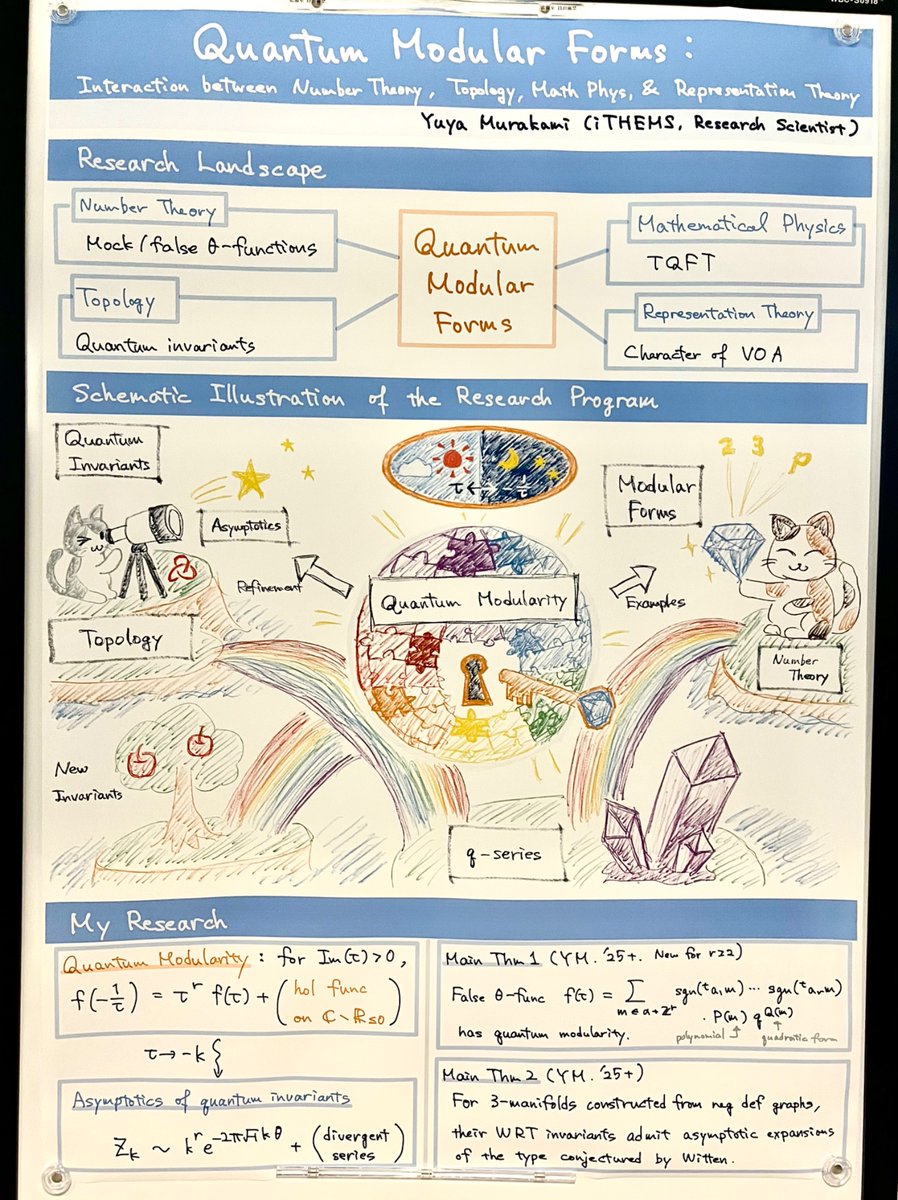 Quantum Modular Forms :
Interaction between Number Theory, Topology, Math Phys, & Representation Theory
Yuya Murakami (iTHEMS, Research Scientist)
Research Landscape
Number Theory
Mock / false θ-functions
Topology
Quantum invariants
Quantum
Modular
Forms
Mathematical Physics
TQFT
Representation Theory
Character of VOA
Schematic Illustration of the Research Program
Quantum
Invariants
Asymptotics
Refinement
Topology
Quantum Modularity
Modular
Forms
2 3 p
Examples
Number
Theory
New
Invariants
q-series
My Research
Quantum Modularity : for Im(τ)>0,
f(-1/τ) = τ^r f(τ) + (hol func
on ℂ∖ℝ≤0)
τ→-k
Asymptotics of quantum invariants
Z_k ~ k^r e^{-2π√-1 k θ} + (divergent
series)
Main Thm 1 (YM. '25+. New for r≥2)
False θ-func f(τ) = ∑_{m∈a+ℤ^r} sgn(ᵗa₁m) ⋯ sgn(ᵗaᵣm)
· P(m) q^{Q(m)}
has quantum modularity.
polynomial quadratic form
Main Thm 2 (YM. '25+)
For 3-manifolds constructed from neg def graphs,
their WRT invariants admit asymptotic expansions
of the type conjectured by Witten.